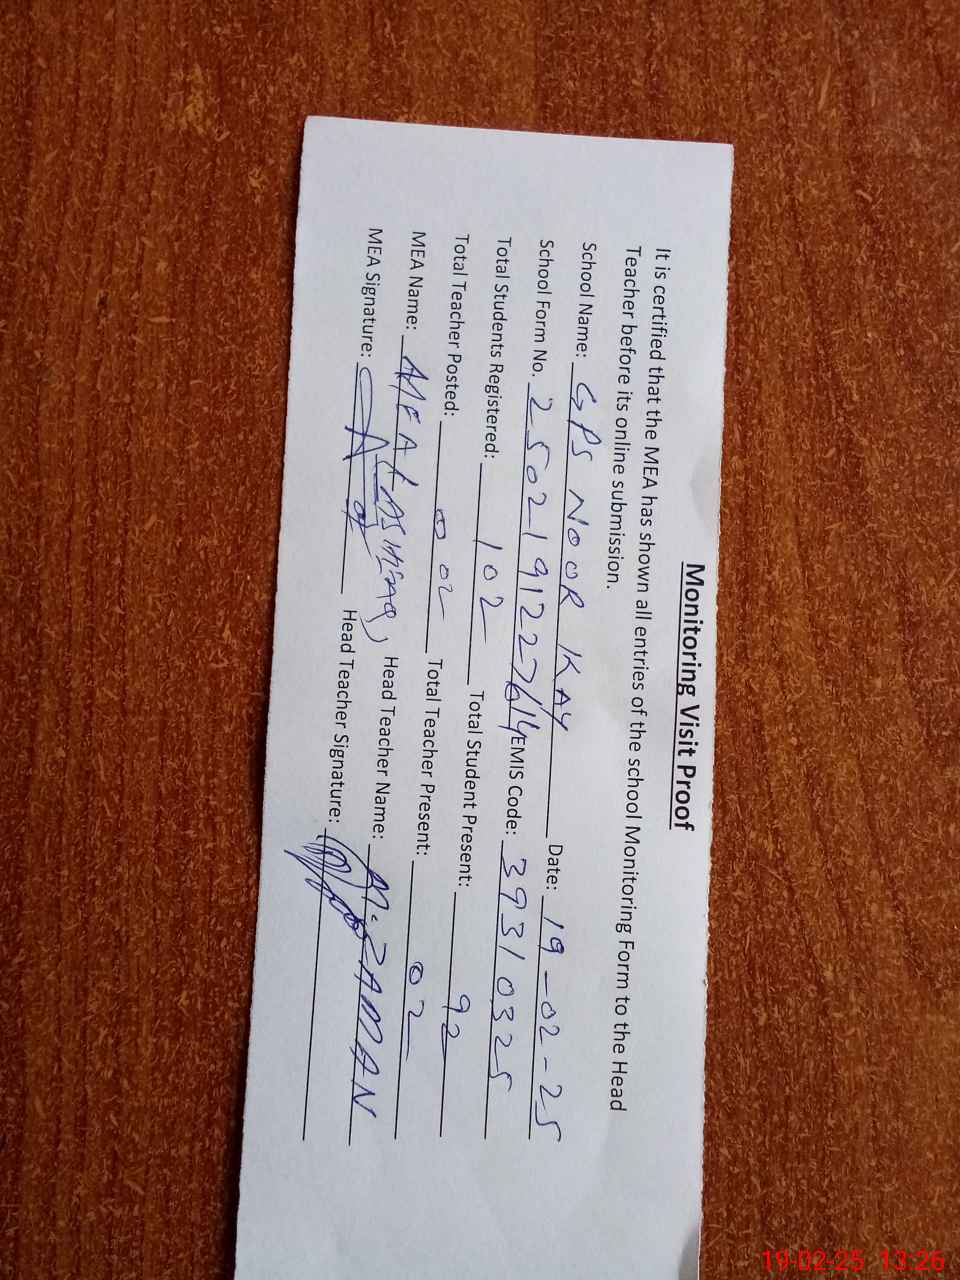 Monitoring Visit Proof
It is certified that the MEA has shown all entries of the school Monitoring Form to the Head
Teacher before its online submission.
School Name: GPS NOOR KAY Date: 19-02-25
School Form No. 2502191227614 EMIS Code: 39310325
Total Students Registered: 102 Total Student Present: 92
Total Teacher Posted: 02 Total Teacher Present: 02
MEA Name: Head Teacher Name: M. ZAMAN
MEA Signature: Head Teacher Signature:
19-02-25 13:26